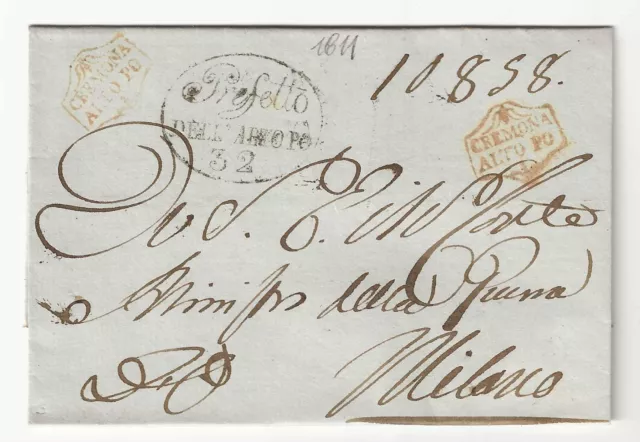 1811
10858.
CREMONA
ALTO PO
Prefetto
DELL'ALTO PO
32
CREMONA
ALTO PO
A S. E. il Sig. Conte
Ministro della Guerra
Milano